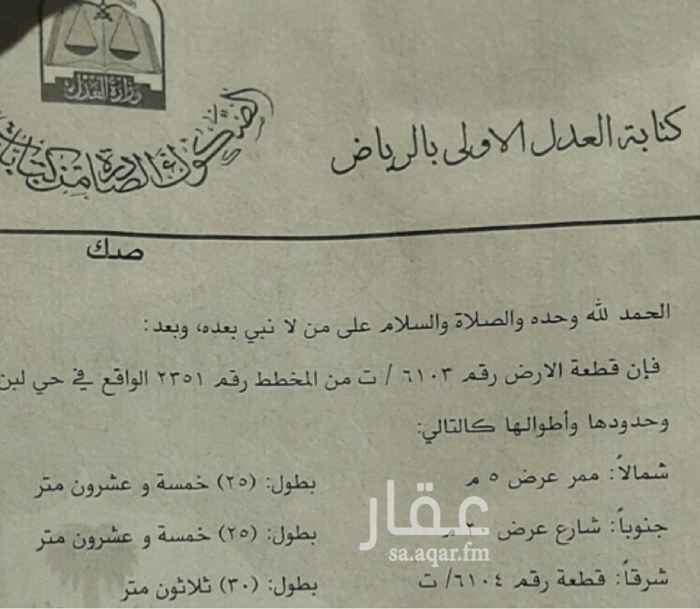 وزارة العدل
كتابة العدل الاولى بالرياض
صك
الحمد لله وحده والصلاة والسلام على من لا نبي بعده، وبعد:
فإن قطعة الارض رقم ٦١٠٣ / ت من المخطط رقم ٢٣٥١ الواقع في حي لبن
وحدودها وأطوالها كالتالي:
شمالاً: ممر عرض ٥ م بطول: (٢٥) خمسة و عشرون متر
جنوباً: شارع عرض بطول: (٢٥) خمسة و عشرون متر
شرقاً: قطعة رقم ٦١٠٤/ ت بطول: (٣٠) ثلاثون متر
عقار
sa.aqar.fm